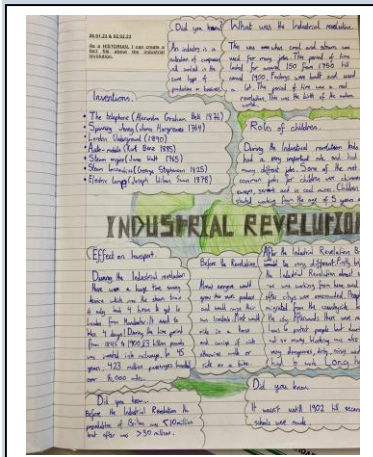 30.01.23 & 02.02.23
As a HISTORIAN, I can create a
fact file about the industrial
revolution.
Did you know?
An industry is a
collection of companies
all involved in the
same type of
production or business
What was the Industrial revolution.
This was when coal and steam was
used for many jobs. This period of time
lasted for around 150 from 1750 till
around 1900. Factories were built and used
a lot. This period of time was a real
revolution. This was the birth of the modern
world.
Inventions.
• The telephone (Alexander Graham Bell 1876)
• Spinning Jenny (James Hargreaves 1764)
• London Underground (1890)
• Auto-mobile (Karl Benz 1885)
• Steam engine (James Watt 1765)
• Steam locomotive (George Stephenson 1825)
• Electric lamp (Joseph Wilson Swan 1878)
Roles of children.
During the Industrial revolution
had a very important role and had
many different jobs. Some of the most
common jobs for children was chimney
sweeper, servants and in coal mines. Children
started working from the age of 5 years
INDUSTRIAL REVELUTION
Effect on transport.
During the Industrial revolution
there were a huge time saving
device which was the steam train
it only took 4 hours to get to
London from Manchester. It used to
take 4 days! During the time period
from 1845 to 1900, 23 billion pounds
was invested into railways. In 45
years, 423 million passengers travelled
over 16,000 miles.
Before the Revolution
Almost everyone would
grow their own produce
and would make their
own products. Most would
live in a house
and cottage if rich
otherwise would
After the Industrial Revolution
would be very different. Firstly before
the Industrial Revolution
was working from home and
after cities was
migrated from the countryside
the city. Afterwards there was
laws to protect people but
not so many. Working was also
very dangerous, dirty, noisy and
Did you know
Before the Industrial Revolution the
population of Britain was <10 million
but after was >30 million.
Did you know
It wasn't until 1902 till
schools were made.